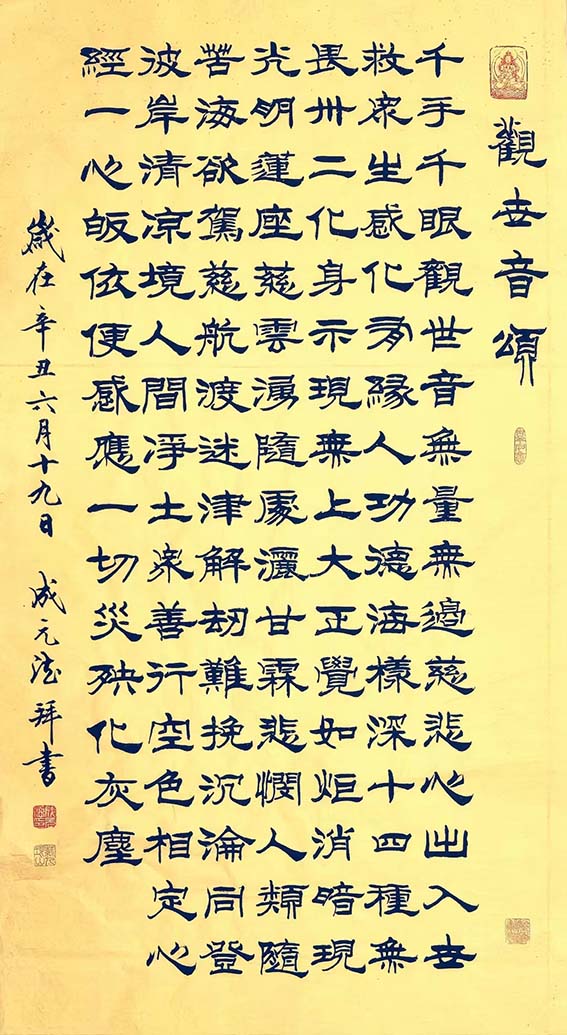 觀世音頌
千手千眼觀世音無量無邊慈悲心出入世
救衆生感化有緣人功德海樣深十四種無
畏卅二化身示現無上大正覺如炬消暗現
光明蓮座慈雲湧隨處灑甘霖悲憫人類隨
苦海欲駕慈航渡迷津解劫難挽沉淪同登
彼岸清凉境人間凈土衆善行空色相定心
經一心皈依便感應一切災殃化灰塵
歲在辛丑六月十九日 成元法拜書